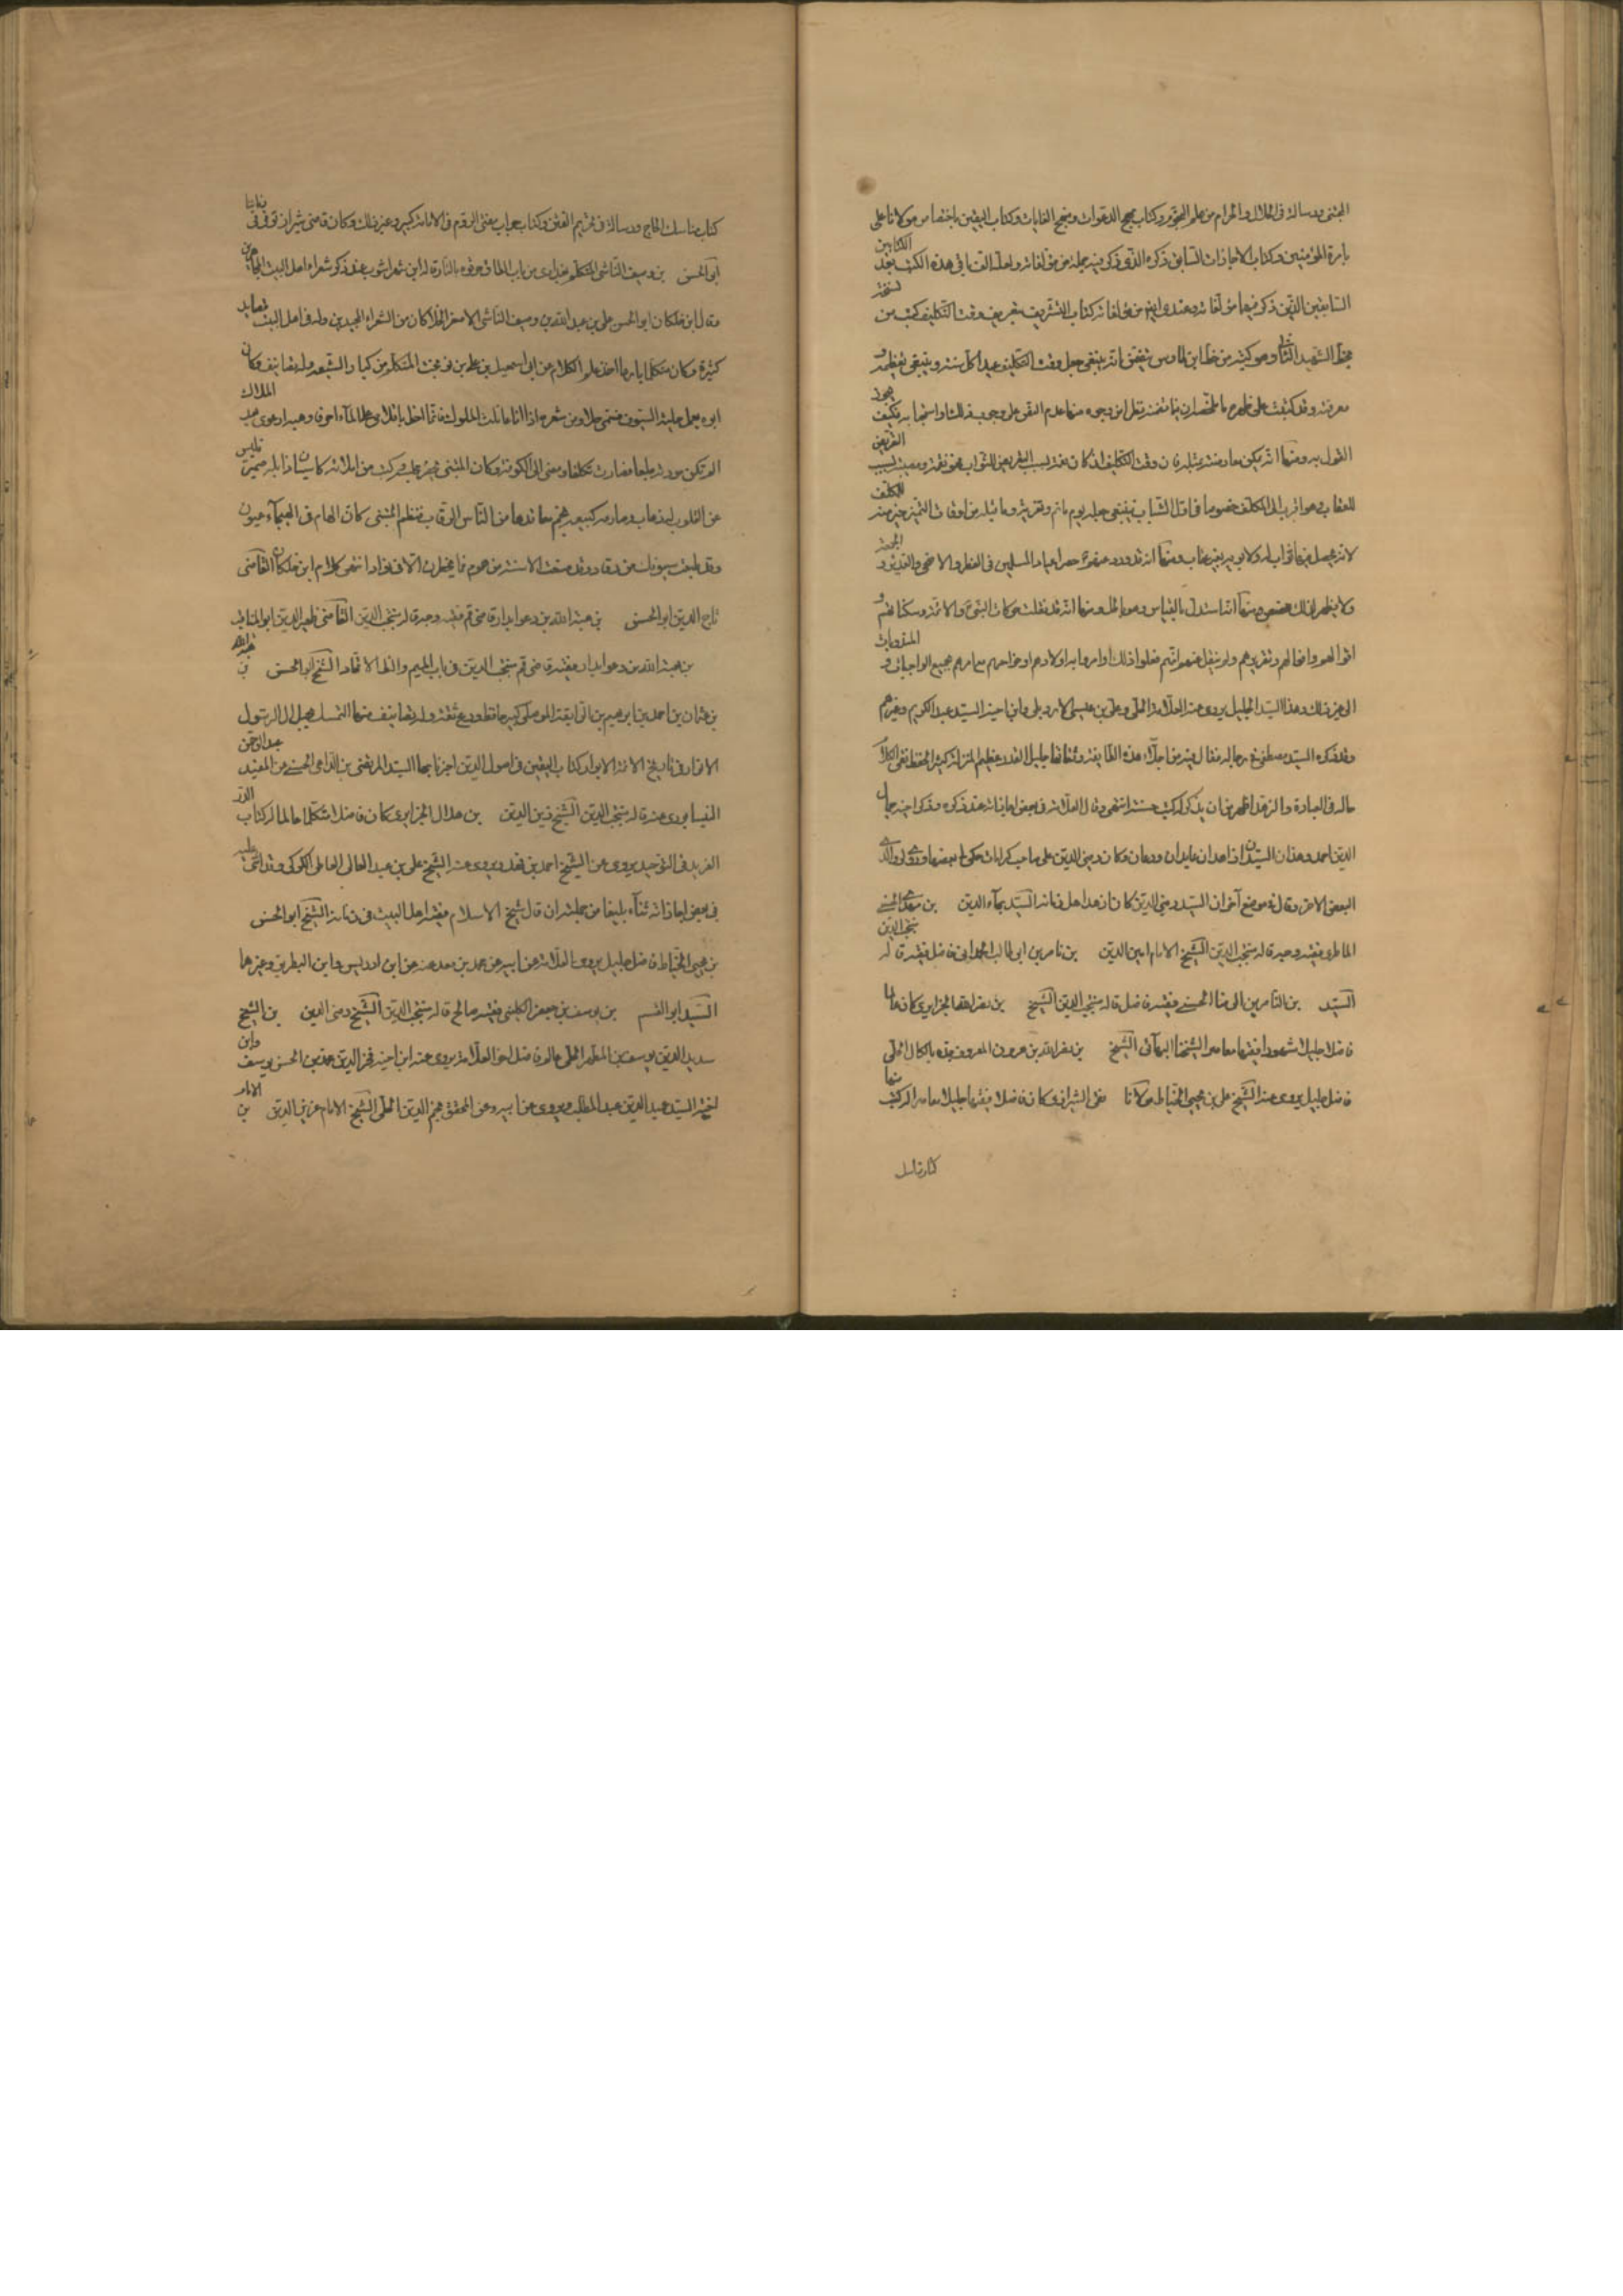 المجتنى ورسالة في الحلال والحرام من علم النجوم وكتاب مهج الدعوات ومنهج الغايات وكتاب اليقين باختصاص مولانا علي
بامرة المؤمنين وكتاب الاجازات السابق ذكره الذي ذكر فيه جملة من مؤلفاته ولعله الف باقي هذه الكتب بعد الكتابين
السابقين الذين ذكر فيهما مؤلفاته وعندي ايضا من مؤلفاته كتاب التشريف بتعريف وقت التكليف كتب من نسخة
بخط الشهيد الثاني وهو كثير من خط ابن طاوس يتضمن انه ينبغي جعل وقت التكليف عيدا كل سنة وينبغي تعظيمه و
معرفته وقد كتبت على ظهره ما ملخصه ان ما تضمنه من وجوه منها عدم النص على وجوب ذلك او استحبابه فكيف يجوز
القول به ومنها انه يمكن معارضته بمثله فان وقت التكليف اذ كان نعمة بسبب التعريض للثواب فهو نقمة ومصيبة بسبب التعريض
للعقاب وهو اقرب الى المكلف خصوصا في اول الشباب فينبغي جعله يوم ماتم وتعزية وما قبله من اوقات التميز خير منه للمكلف
لانه يحصل فيها ثواب له ولابويه بغير عقاب ومنها انه قد ورد حصر اعياد المسلمين في الفطر والاضحى والغدير و الجمعة
ولا يظهر لذلك مخصص ومنها انه استدل بالقياس وهو باطل ومنها انه قد نقلت حركات النبي والائمة وسكناتهم و
اقوالهم وافعالهم وتقريرهم ولم ينقل عنهم انهم فعلوا ذلك او امروا به اولادهم او خواصهم مع امرهم بجميع الواجبات و المندوبات
الى غير ذلك وهذا السيد الجليل يروي عنه العلامة الحلي وعلي بن عيسى الاربلي وابن اخيه السيد عبد الكريم وغيرهم
وقد ذكره السيد مصطفى في رجاله فقال فيه من اجلاء هذه الطائفة وثقاتها جليل القدر عظيم المنزلة كثير الحفظ نقي الكلام
حاله في العبادة والزهد اظهر من ان يذكر له كتب حسنة انتهى وقال العلامة في بعض اجازاته عند ذكره وذكر اخيه جمال
الدين احمد وهذان السيدان زاهدان عابدان ورعان وكان رضي الدين علي صاحب كرامات حكى لي بعضها وروى لي والدي
البعض الاخر وقال في موضع آخر ان السيد رضي الدين كان ازهد اهل زمانه السيد بهاء الدين بن مهدي الحسني
المامطيري فقيه وجيه قاله منتجب الدين الشيخ الامام امين الدين بن ناصر بن ابي طالب فاضل فقيه قاله منتجب الدين
السيد بن الناصر بن الرضا الحسني فقيه فاضل قاله منتجب الدين الشيخ بن نصر الله الجزايري كان عالما
فاضلا جليلا مشهورا فقيها معاصرا لشيخنا البهائي الشيخ بن نصر الله بن هرون المعروف جده بالكال الحلي
فاضل جليل يروي عنه الشيخ علي بن يحيى الخياط مولانا نقي الشيرازي كان فاضلا فقيها جليلا معاصرا له كتب منها
كتاب مناسك
كتاب مناسك الحاج ورسالة في تحريم التتن وكتاب جواب مفتي الروم في الامامة كبير وغير ذلك وكان قاضي شيراز توفي في زماننا
ابو الحسن بن وصيف الناشي المتكلم بغدادي من باب الطاق حرقوه بالنار قاله ابن شهراشوب عند ذكر شعراء اهل البيت المجاهرين
وقال ابن خلكان ابو الحسن علي بن عبد الله بن وصيف الناشي الاصغر الحلا كان من الشعراء المجيدين وله في اهل البيت قصايد
كثيرة وكان متكلما بارعا اخذ علم الكلام عن ابي اسمعيل بن علي بن نوبخت المتكلم من كبار الشيعة وله تصانيف وكان
ابوه يعمل حلية السيوف فسمي حلاء ومن شعره اذا انا عاتبت الملوك فانما اخط باقلامي على الماء احرفا وهبه ارعوى بعد الملاك
الم تكن مودته طبعا فصارت تكلفا ومضى الى الكوفة وكان المتنبي يحضر مجلسه وكتب من املائه كان سنان ذابله ضمير فليس
عن القلوب له ذهاب وصارمه كبيعته بخم مقاصدها من الناس الرقاب فنظم المتنبي كان الهام في الهيجاء عيون
وقد طبعت سيوفك من رقاد وقد صغت الاسنة من هموم فما يخطرن الا في فؤاد انتهى كلام ابن خلكان القاضي
تاج الدين ابو الحسن بن هبة الله بن دعويدار قاضي قم فقيه وجيه قاله منتجب الدين القاضي ظهير الدين ابو المناقب
بن هبة الله بن دعويدار فقيه قاضي قم منتجب الدين في باب الميم والظاهر الاتحاد الشيخ ابو الحسن بن هبة الله
بن عثمان بن احمد بن ابرهيم بن الرائقة الموصلي كبير حافظ ورع ثقة وله تصانيف منها المتمسك بحبل آل الرسول
الانوار في تاريخ الائمة الابرار كتاب اليقين في اصول الدين اخبرنا بها السيد المرتضى بن الداعي الحسني عن المفيد عبد الرحمن
النيسابوري عنه قاله منتجب الدين الشيخ زين الدين بن هلال الجزايري كان فاضلا متكلما عالما له كتاب الدر
الفريد في التوحيد يروي عن الشيخ احمد بن فهد ويروي عنه الشيخ علي بن عبد العالي العاملي الكركي وقد اثنى عليه
في بعض اجازاته ثناء بليغا من جملته ان قال شيخ الاسلام فقيه اهل البيت في زمانه الشيخ ابو الحسن
بن يحيى الخياط فاضل جليل يروي العلامة عن ابيه عن محمد بن معد عنه عن ابن ادريس وابن البطريق وغيرهما
السيد ابو القسم بن يوسف بن جعفر الكليني فقيه صالح قاله منتجب الدين الشيخ رضي الدين بن الشيخ
سديد الدين يوسف بن المطهر الحلي عالم فاضل اخو العلامة يروي عنه ابن اخيه فخر الدين محمد بن الحسن بن يوسف وابن
اخته السيد عميد الدين عبد المطلب ويروي عن ابيه وعن المحقق نجم الدين الحلي الشيخ الامام عز الدين بن الامام